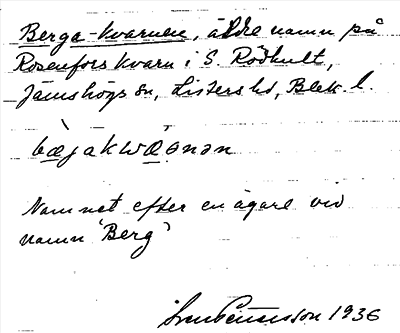 Berga-kvarnen, äldre namn på
Rosenfors kvarn i S. Rödhult,
Jämshögs sn, Listers hd, Blek. l.
bæjakwæɑnən
Namnet efter en ägare vid
namn 'Berg'
1936